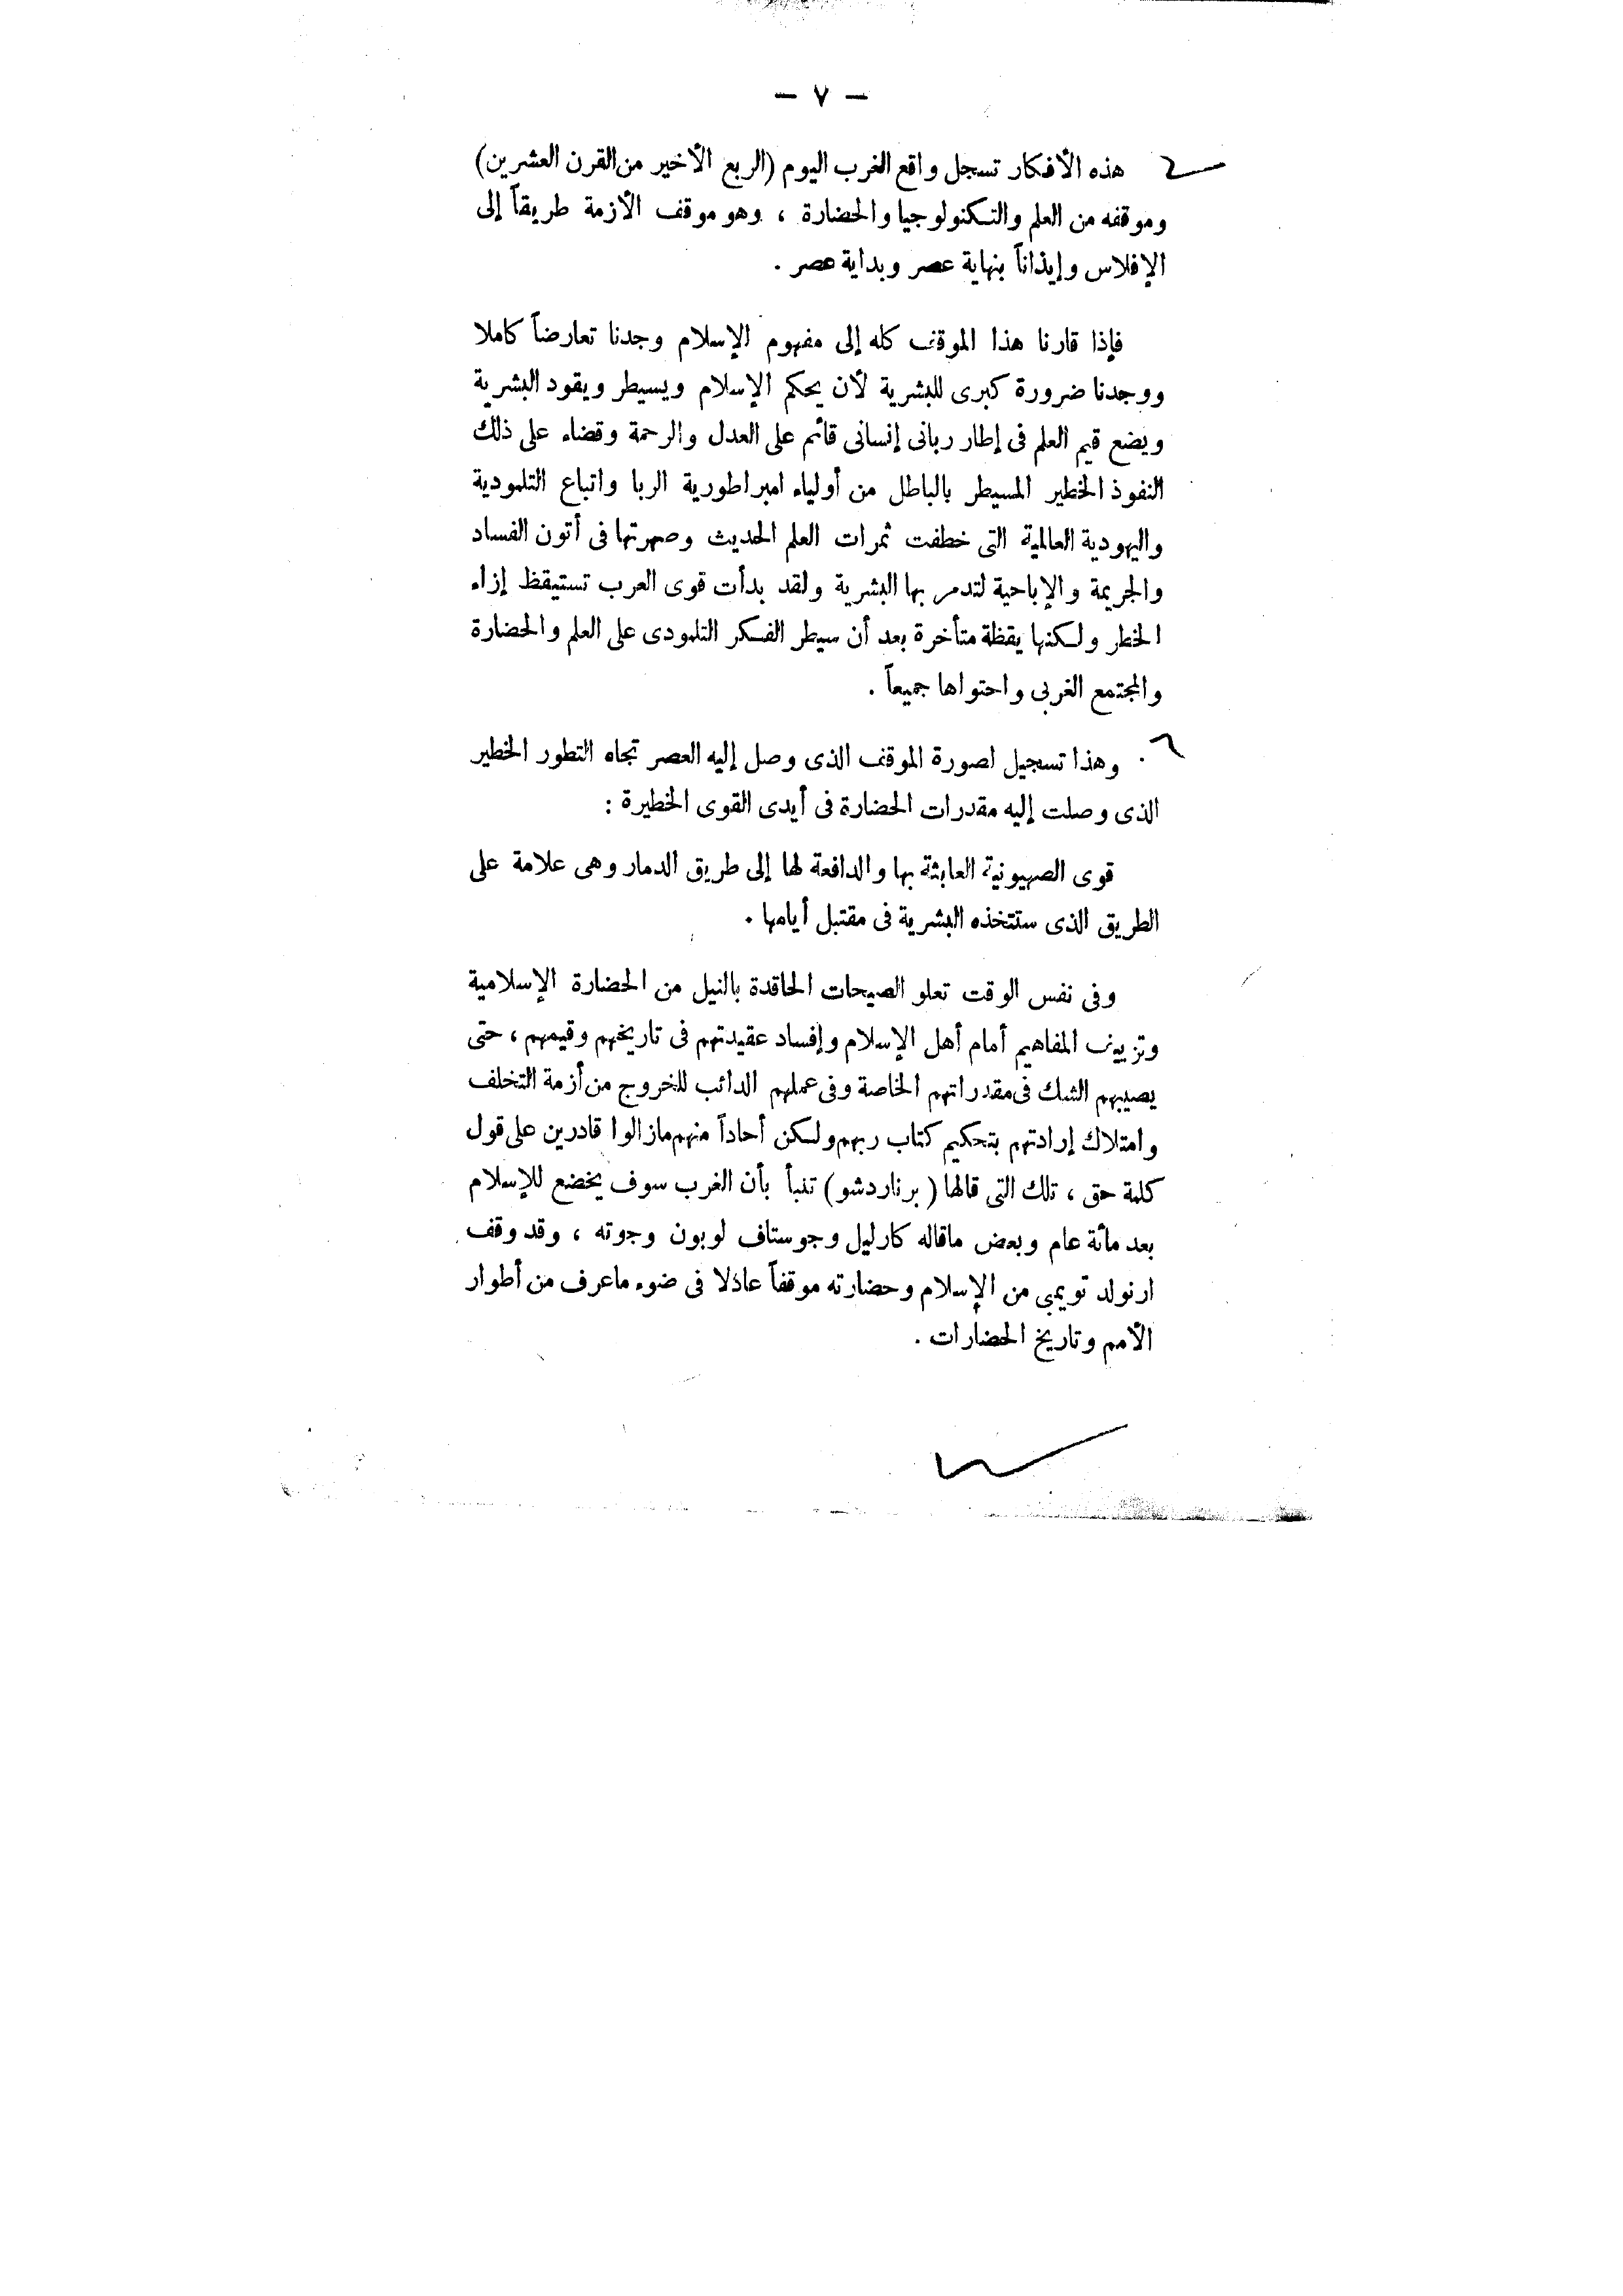 — ٧ —
هذه الأفكار تسجل واقع الغرب اليوم (الربع الأخير من القرن العشرين)
وموقفه من العلم والتكنولوجيا والحضارة ، وهو موقف الأزمة طريقاً إلى
الإفلاس وإيذاناً بنهاية عصر وبداية عصر .
فإذا قارنا هذا الموقف كله إلى مفهوم الإسلام وجدنا تعارضاً كاملا
ووجدنا ضرورة كبرى للبشرية لأن يحكم الإسلام ويسيطر ويقود البشرية
ويضع قيم العلم فى إطار ربانى إنسانى قائم على العدل والرحمة وقضاء على ذلك
النفوذ الخطير المسيطر بالباطل من أولياء امبراطورية الربا واتباع التلمودية
واليهودية العالمية التى خطفت ثمرات العلم الحديث وصهرتها فى أتون الفساد
والجريمة والإباحية لتدمر بها البشرية ولقد بدأت قوى العرب تستيقظ إزاء
الخطر ولكنها يقظة متأخرة بعد أن سيطر الفكر التلمودى على العلم والحضارة
والمجتمع الغربى واحتواها جميعاً .
وهذا تسجيل لصورة الموقف الذى وصل إليه العصر تجاه التطور الخطير
الذى وصلت إليه مقدرات الحضارة فى أيدى القوى الخطيرة :
قوى الصهيونية العابثة بها والدافعة لها إلى طريق الدمار وهى علامة على
الطريق الذى ستتخذه البشرية فى مقتبل أيامها .
وفى نفس الوقت تعلو الصيحات الحاقدة بالنيل من الحضارة الإسلامية
وتزييف المفاهيم أمام أهل الإسلام وإفساد عقيدتهم فى تاريخهم وقيمهم ، حتى
يصيبهم الشك فى مقدراتهم الخاصة وفى عملهم الدائب للخروج من أزمة التخلف
وامتلاك إرادتهم بتحكيم كتاب ربهم ولكن أحاداً منهم مازالوا قادرين على قول
كلمة حق ، تلك التى قالها ( برناردشو ) تنبأ بأن الغرب سوف يخضع للإسلام
بعد مائة عام وبعض ماقاله كارليل وجوستاف لوبون وجوته ، وقد وقف
ارنولد تويمبى من الإسلام وحضارته موقفاً عاذلا فى ضوء ماعرف من أطوار
الأمم وتاريخ الحضارات .